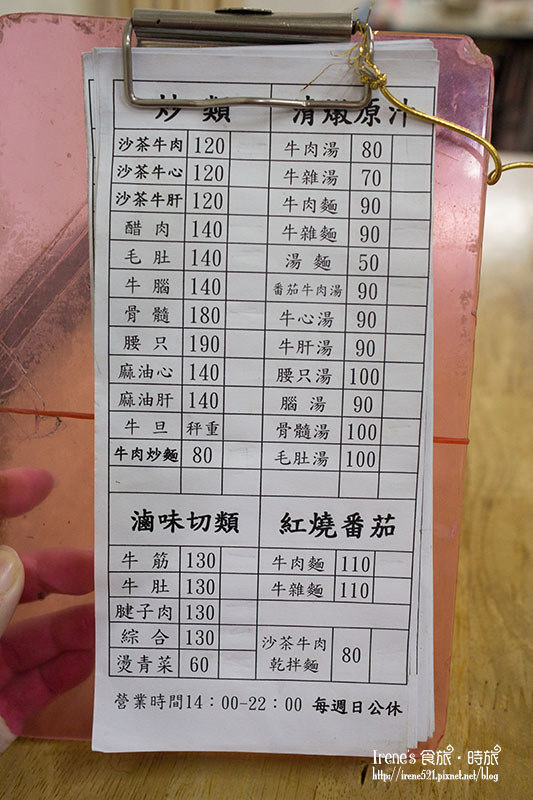 炒類
沙茶牛肉 120
沙茶牛心 120
沙茶牛肝 120
醋肉 140
毛肚 140
牛腦 140
骨髓 180
腰只 190
麻油心 140
麻油肝 140
牛旦 秤重
牛肉炒麵 80
清燉原汁
牛肉湯 80
牛雜湯 70
牛肉麵 90
牛雜麵 90
湯麵 50
番茄牛肉湯 90
牛心湯 90
牛肝湯 90
腰只湯 100
腦湯 90
骨髓湯 100
毛肚湯 100
滷味切類
牛筋 130
牛肚 130
腱子肉 130
綜合 130
燙青菜 60
紅燒番茄
牛肉麵 110
牛雜麵 110
沙茶牛肉
乾拌麵 80
營業時間14：00-22：00 每週日公休
Irene's 食旅·時旅
http://irene521.pixnet.net/blog